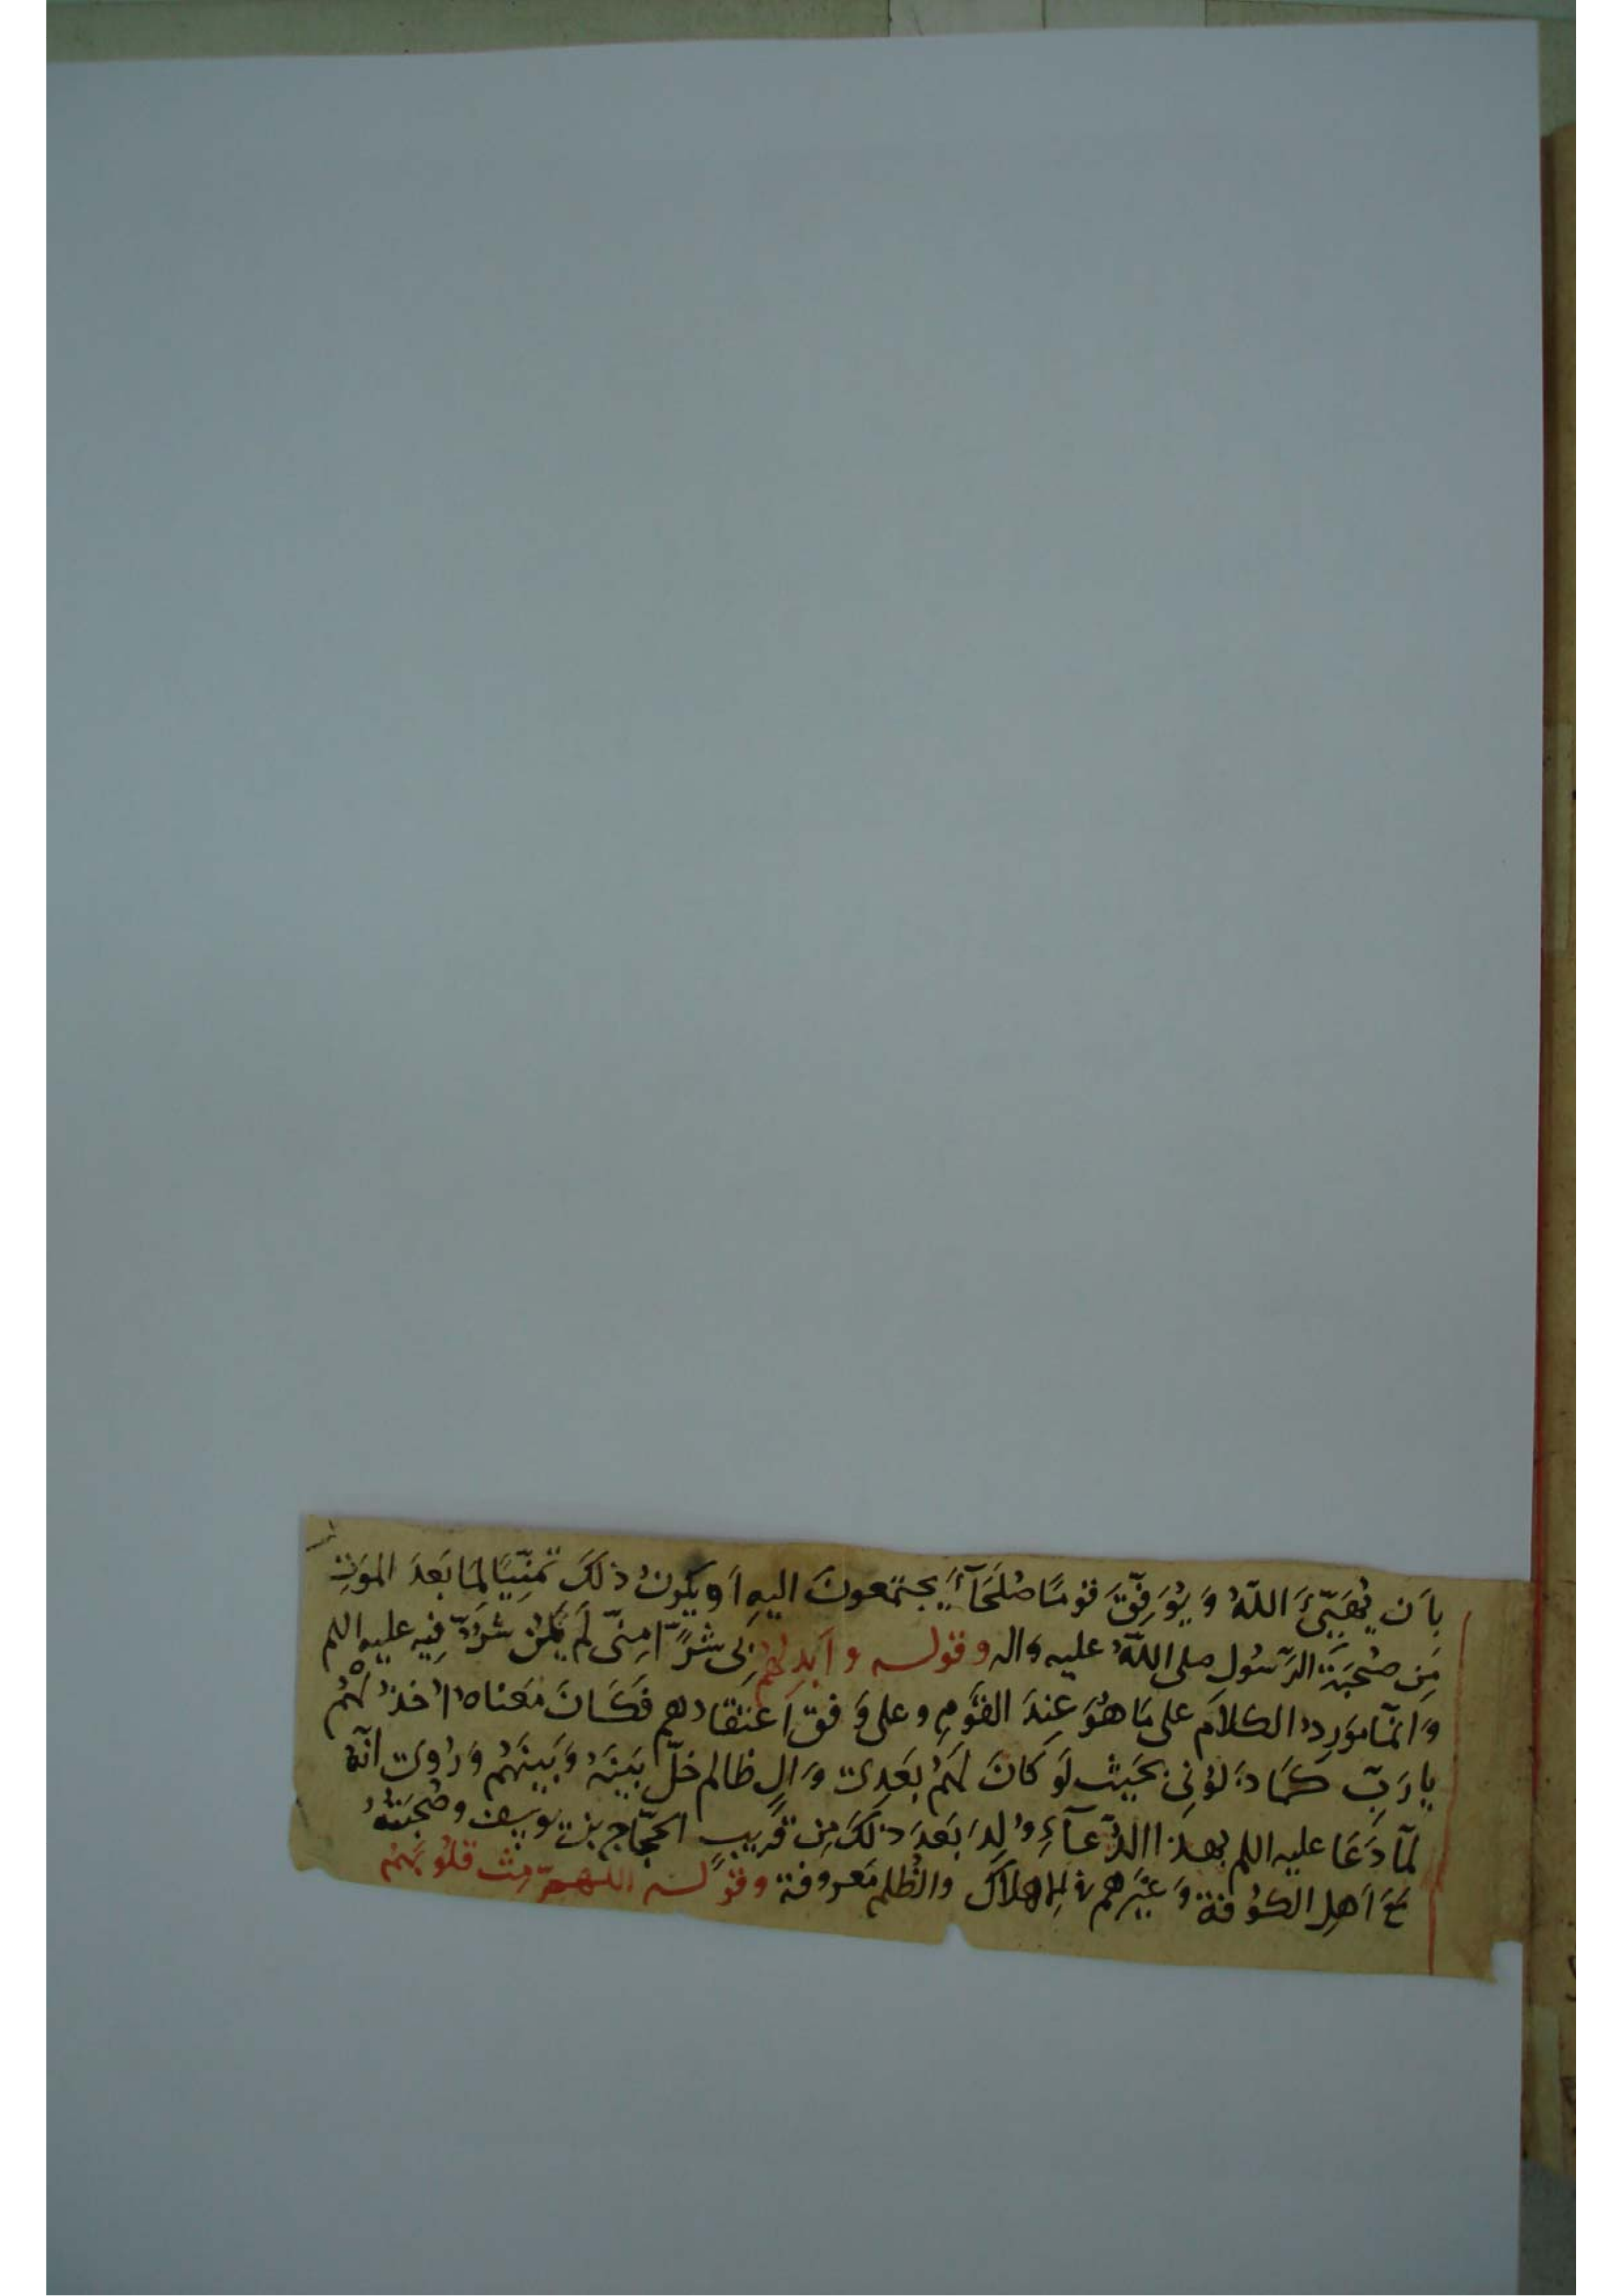 بِاَن يُهَيِّئَ اللّهُ وَ يُوَفِّقَ قَومًا صُلَحَآءَ يجتمعونَ اليهِ اَو يكونُ ذلكَ تمَنِّيًا لِمَا بَعدَ المَوتِ
مِن صُحبَةِ الرّسُول صلى اللّهُ عليه وَاله و قوله و اَبدِلهُم بى شَرًّا مِنّى لَم يكُن شَرٌّ فِيهِ عليه اللم
وَ انّمَا مَورِدُ الكلاَم على مَا هُوَ عِندَ القَومِ و على وَفقِ اعتقادهم فَكَانَ مَعناه اُخذُلهُم
يا رَبِّ كَمَا خَذَلُونى بحَيث لَو كَانَ لهَمُ بَعدِى وَالٍ ظالم خَلِّ بَينَهُ وَ بَينَهُم وَ رُوِىَ انّهُ
لَمّا دَعَا عليه اللم بهذا الدّعآءِ وُلِدَ بَعدَ ذلكَ مِن قَرِيبٍ الحجّاج بن يوسف و صُحبَتُهُ
مَعَ اَهلِ الكُوفة وَ غَيرهم فى الاهلاَك والظّلم مَعروفة و قوله اللهمّ مِث قلُوبَهُم